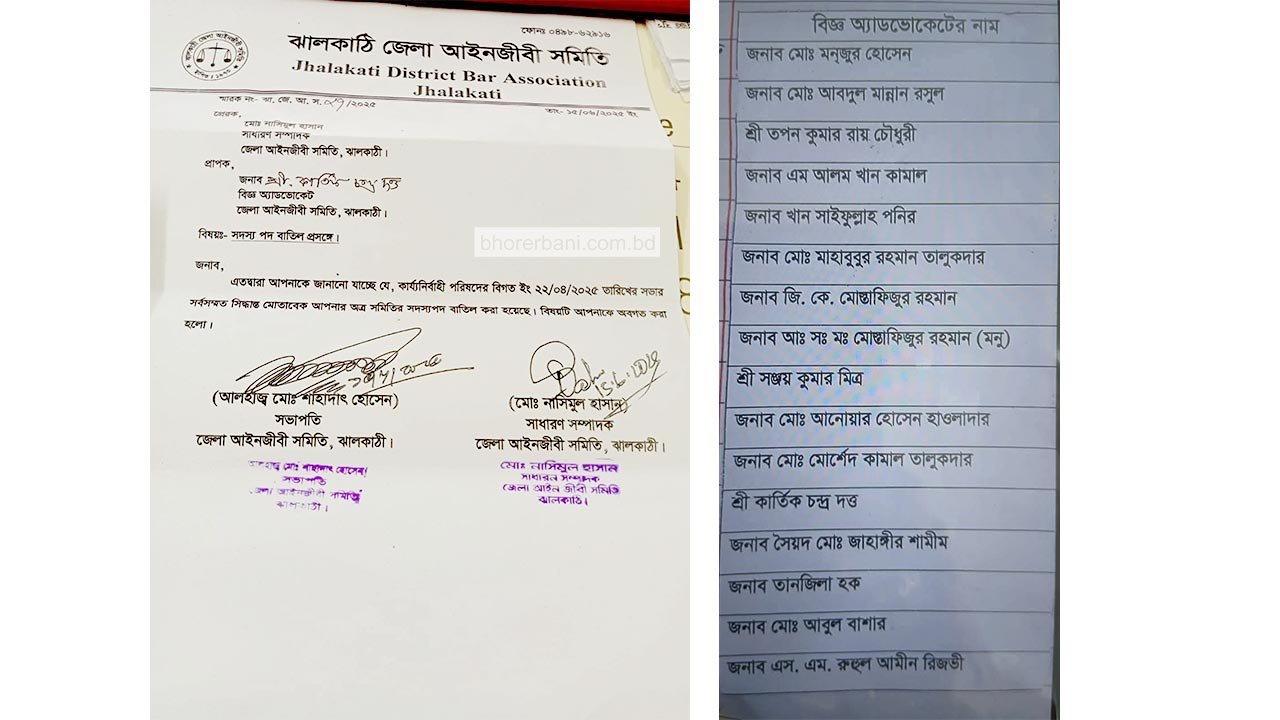 ফোনঃ ০৪৯৮-৬২৯১৬
ঝালকাঠি জেলা আইনজীবী সমিতি
Jhalakati District Bar Association
Jhalakati
স্মারক নং- ঝা. জে. আ. স. /২০২৫
তাং- ১৫/০৬/২০২৫ ইং
প্রেরক,
মোঃ নাসিমুল হাসান
সাধারণ সম্পাদক
জেলা আইনজীবী সমিতি, ঝালকাঠী।
প্রাপক,
জনাব শ্রী. কার্তিক চন্দ্র দত্ত
বিজ্ঞ অ্যাডভোকেট
জেলা আইনজীবী সমিতি, ঝালকাঠী।
বিষয়ঃ- সদস্য পদ বাতিল প্রসঙ্গে।
bhorerbani.com.bd
জনাব,
এতদ্বারা আপনাকে জানানো যাচ্ছে যে, কার্য্যনির্বাহী পরিষদের বিগত ইং ২২/০৪/২০২৫ তারিখের সভার
সর্বসম্মত সিদ্ধান্ত মোতাবেক আপনার অত্র সমিতির সদস্যপদ বাতিল করা হয়েছে। বিষয়টি আপনাকে অবগত করা
হলো।
(আলহাজ্ব মোঃ শাহাদাৎ হোসেন)
সভাপতি
জেলা আইনজীবী সমিতি, ঝালকাঠী।
আলহাজ্ব মোঃ শাহাদাৎ হোসেন
সভাপতি
জেলা আইনজীবী সমিতি
ঝালকাঠী।
(মোঃ নাসিমুল হাসান)
সাধারণ সম্পাদক
জেলা আইনজীবী সমিতি, ঝালকাঠী।
মোঃ নাসিমুল হাসান
সাধারন সম্পাদক
জেলা আইন জীবী সমিতি
ঝালকাঠি।
বিজ্ঞ অ্যাডভোকেটের নাম
জনাব মোঃ মনজুর হোসেন
জনাব মোঃ আবদুল মান্নান রসুল
শ্রী তপন কুমার রায় চৌধুরী
জনাব এম আলম খান কামাল
জনাব খান সাইফুল্লাহ পনির
জনাব মোঃ মাহাবুবুর রহমান তালুকদার
জনাব জি. কে. মোস্তাফিজুর রহমান
জনাব আঃ সঃ মঃ মোস্তাফিজুর রহমান (মনু)
শ্রী সঞ্জয় কুমার মিত্র
জনাব মোঃ আনোয়ার হোসেন হাওলাদার
জনাব মোঃ মোর্শেদ কামাল তালুকদার
শ্রী কার্তিক চন্দ্র দত্ত
জনাব সৈয়দ মোঃ জাহাঙ্গীর শামীম
জনাব তানজিলা হক
জনাব মোঃ আবুল বাশার
জনাব এস. এম. রুহুল আমীন রিজভী